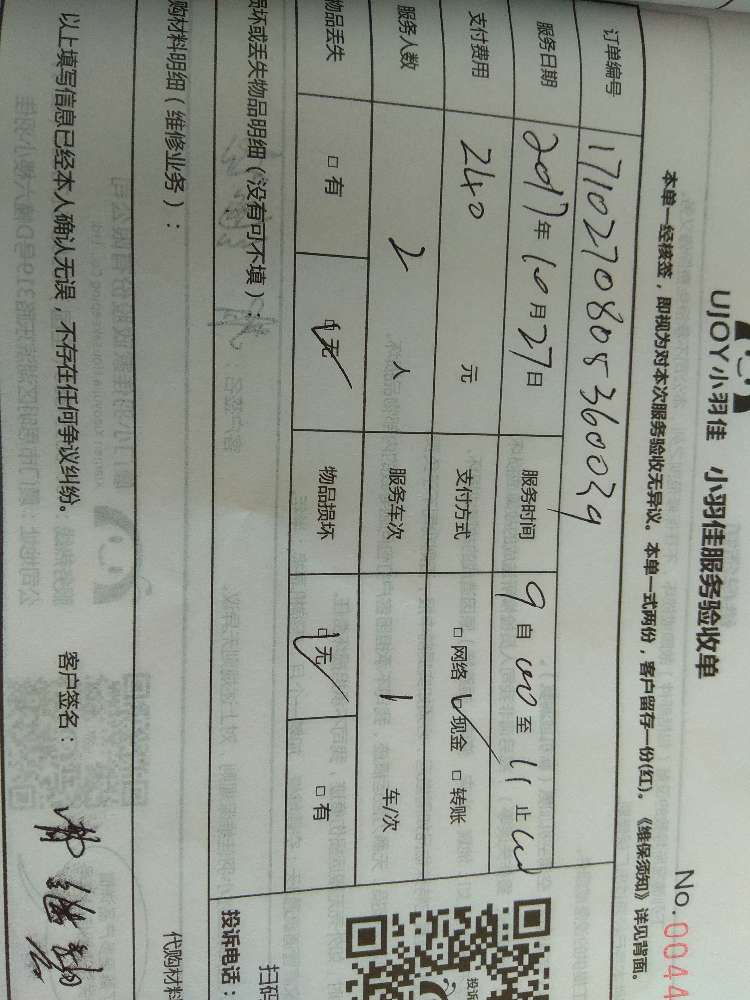 UJOY小羽佳 小羽佳服务验收单
No.0044
本单一经核签，即视为对本次服务验收无异议。本单一式两份，客户留存一份(红)。《维保须知》详见背面。
订单编号 1710270805360039
服务日期 2017年10月27日 服务时间 9自00至11止00
支付费用 240 元 支付方式 □网络 ☑现金 □转账
服务人数 2 人 服务车次 1 车/次
物品丢失 □有 ☑无 物品损坏 ☑无 □有
损坏或丢失物品明细（没有可不填）：
投诉电话：
扫码
投诉
购材料明细（维修业务）：
代购材料
以上填写信息已经本人确认无误，不存在任何争议纠纷。 客户签名：